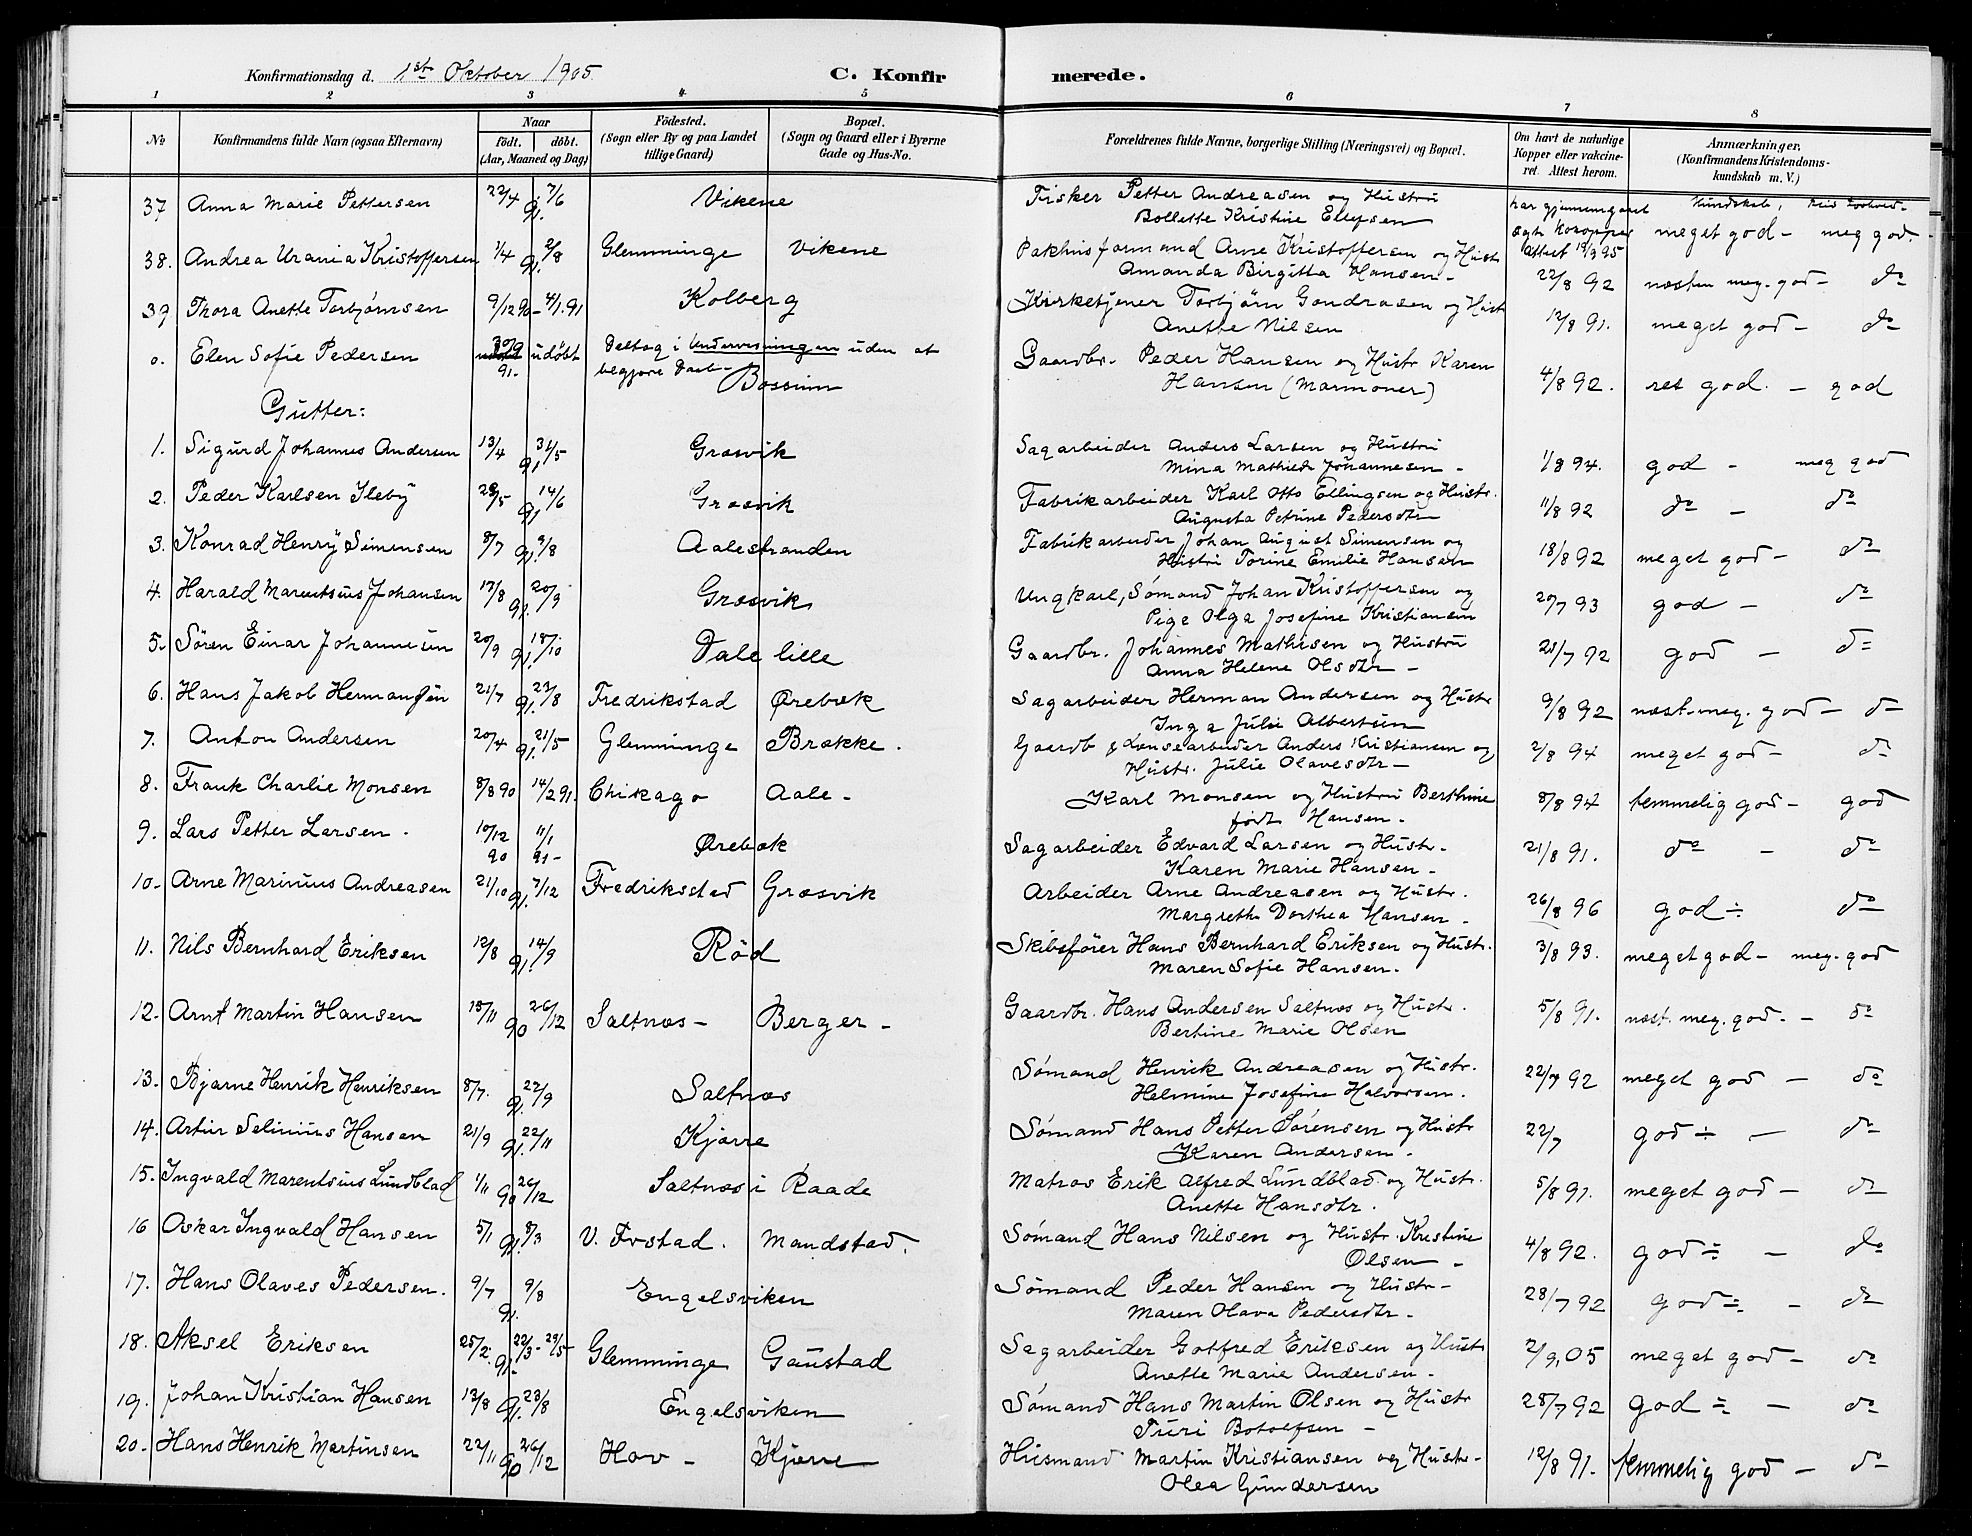 Konfirmationsdag d. 1ste Oktober 1905
C. Konfirmerede.
1 2 3 4 5 6 7 8
No Konfirmandens fulde Navn (ogsaa Efternavn) Naar födt. döbt. (Aar, Maaned og Dag) Födested. (Sogn eller By og paa Landet tillige Gaard) Bopæl. (Sogn og Gaard eller i Byerne Gade og Hus-No. Forældrenes fulde Navne, borgerlige Stilling (Næringsvei) og Bopæl. Om havt de naturlige Kopper eller vakcineret. Attest herom. Anmærkninger. (Konfirmandens Kristendomskundskab m. V.)
37 Anna Marie Pettersen 22/4 91. 7/6 Vikene Fisker Petter Andreasen og Hustru har gjennemgaaet Kundskab,
Bollette Kristine Ellefsen ægte Kokopper Attest 18/9 95 meget god - meg god.
38. Andrea Urania Kristoffersen 1/4 91. 2/8 Glemminge Vikene Pakhusformand Arne Kristoffersen og Hustr
Amanda Birgitta Hansen - 22/8 92 næsten meg. god - do
39 Thora Anette Torbjørnsen 9/12 90 - 4/1 91 Kolberg Kirketjener Torbjørn Gondrosen og Hust
Anette Nilsen 12/8 91. meget god - do
o. Elen Sofie Pedersen 91. udöbt Deltog i Undervisningen uden at Gaardbr. Peder Hansen og Hustr Karen
begjære Daab - Bossum Hansen (Mormoner) 4/8 92. ret god. - god
Gutter:
1. Sigurd Johannes Andersen 13/4 91 31/5 Græsvik Sagarbeider Anders Larsen og Hustru
Mina Mathilde Johannesen - 1/8 94. god - meg god
2. Peder Karlsen Ileby 28/5 91 14/6 Græsvik Fabrikarbeider Karl Otto Ellingsen og Hustr.
Augusta Petrine Pedersdtr 11/8 92 do - do
3. Konrad Henry Simensen 8/7 91. 9/8 Aalestranden Fabrikarbeider Johan August Simensen og
Hustru Torine Emilie Hansen 18/8 92 meget god - do
4. Harald Marentsius Johansen 17/8 91. 20/9 Græsvik Ungkarl, Sømand Johan Kristoffersen og
Pige Olga Josefine Kristiansen 20/7 93 god - do
5. Søren Einar Johannesen 20/9 91. 18/10 Dale lille Gaardbr. Johannes Mathisen og Hustru
Anna Helene Olsdtr - 25/7 92 god - do
6. Hans Jakob Hermansen 21/7 91. 23/8 Fredrikstad Ørebæk Sagarbeider Herman Andersen og Hustr
Inga Julie Albertsen 9/8 92 næst. meg. god - do
7. Anton Andersen 20/4 91. 21/5 Glemminge Brække. Gaardb & Lænsearbeider Anders Kristiansen og
Hustr. Julie Olavesdtr - 2/8 94 meget god - do
8. Frank Charlie Monsen 8/8 90 14/2 91. Chikago Aale - Karl Monsen og Hustru Berthine
født Hansen - 8/8 94 temmelig god - god
9. Lars Petter Larsen. 10/12 90 11/1 91 - Ørebæk Sagarbeider Edvard Larsen og Hustr.
Karen Marie Hansen - 21/8 91. do - do
10. Arne Marinius Andreasen 21/10 91. 7/12 Fredriksstad Græsvik Arbeider Arne Andreasen og Hustr.
Margrethe Dorthea Hansen - 26/8 96 god ÷ do
11. Nils Bernhard Eriksen 12/8 91. 14/9 Rød Skibsfører Hans Bernhard Eriksen og Hustr.
Maren Sofie Hansen. 3/8 93. meget god - meg. god
12. Arnt Martin Hansen 18/11 90 26/12 Saltnæs - Berger - Gaardbr. Hans Andersen Saltnæs og Hustr.
Bertine Marie Olsen 5/8 91. næst. meg. god. - do
13. Bjarne Henrik Henriksen 8/7. 91. 27/9 Saltnæs Sømand Henrik Andreasen og Hustr.
Helmine Josefine Halvorsen. 22/7 92 meget god - do
14. Artur Selinius Hansen 21/9 91. 22/11 Kjærre Sømand Hans Petter Sørensen og Hustr
Karen Andersen. 22/7 god ÷ - do
15. Ingvald Marentsius Lundblad 1/11 90 26/12 Saltnæs i Raade Matros Erik Alfred Lundblad og Hustr.
Anette Hansdtr. 5/8 91. meget god - do
16 Oskar Ingvald Hansen 5/1 91. 8/3 V. Frstad. Mandstad. Sømand Hans Nilsen og Hustr. Kristine
Olsen - 4/8 92. god ÷ - do
17. Hans Olaves Pedersen. 9/7 91. 9/8 Engelsviken Sømand Peder Hansen og Hustr -
Maren Olava Pedersdtr. 28/7 92 god ÷ - do
18. Aksel Eriksen 25/2. 91. 22/3 - 29/5 Glemminge Gaustad Sagarbeider Gotfred Eriksen og Hustr
Anette Marie Andersen - 2/9, 05 meget god - do
19. Johan Kristian Hansen 13/8 91. 23/8 Engelsviken Sømand Hans Martin Olsen og Hustr
Turi Botolfsen - 28/7 92 god ÷ - do
20. Hans Henrik Martinsen 22/11 90 26/12 Hov - Kjærre Husmand Martin Kristiansen og Hustr -
Olea Gundersen 12/8 91. temmelig god - do